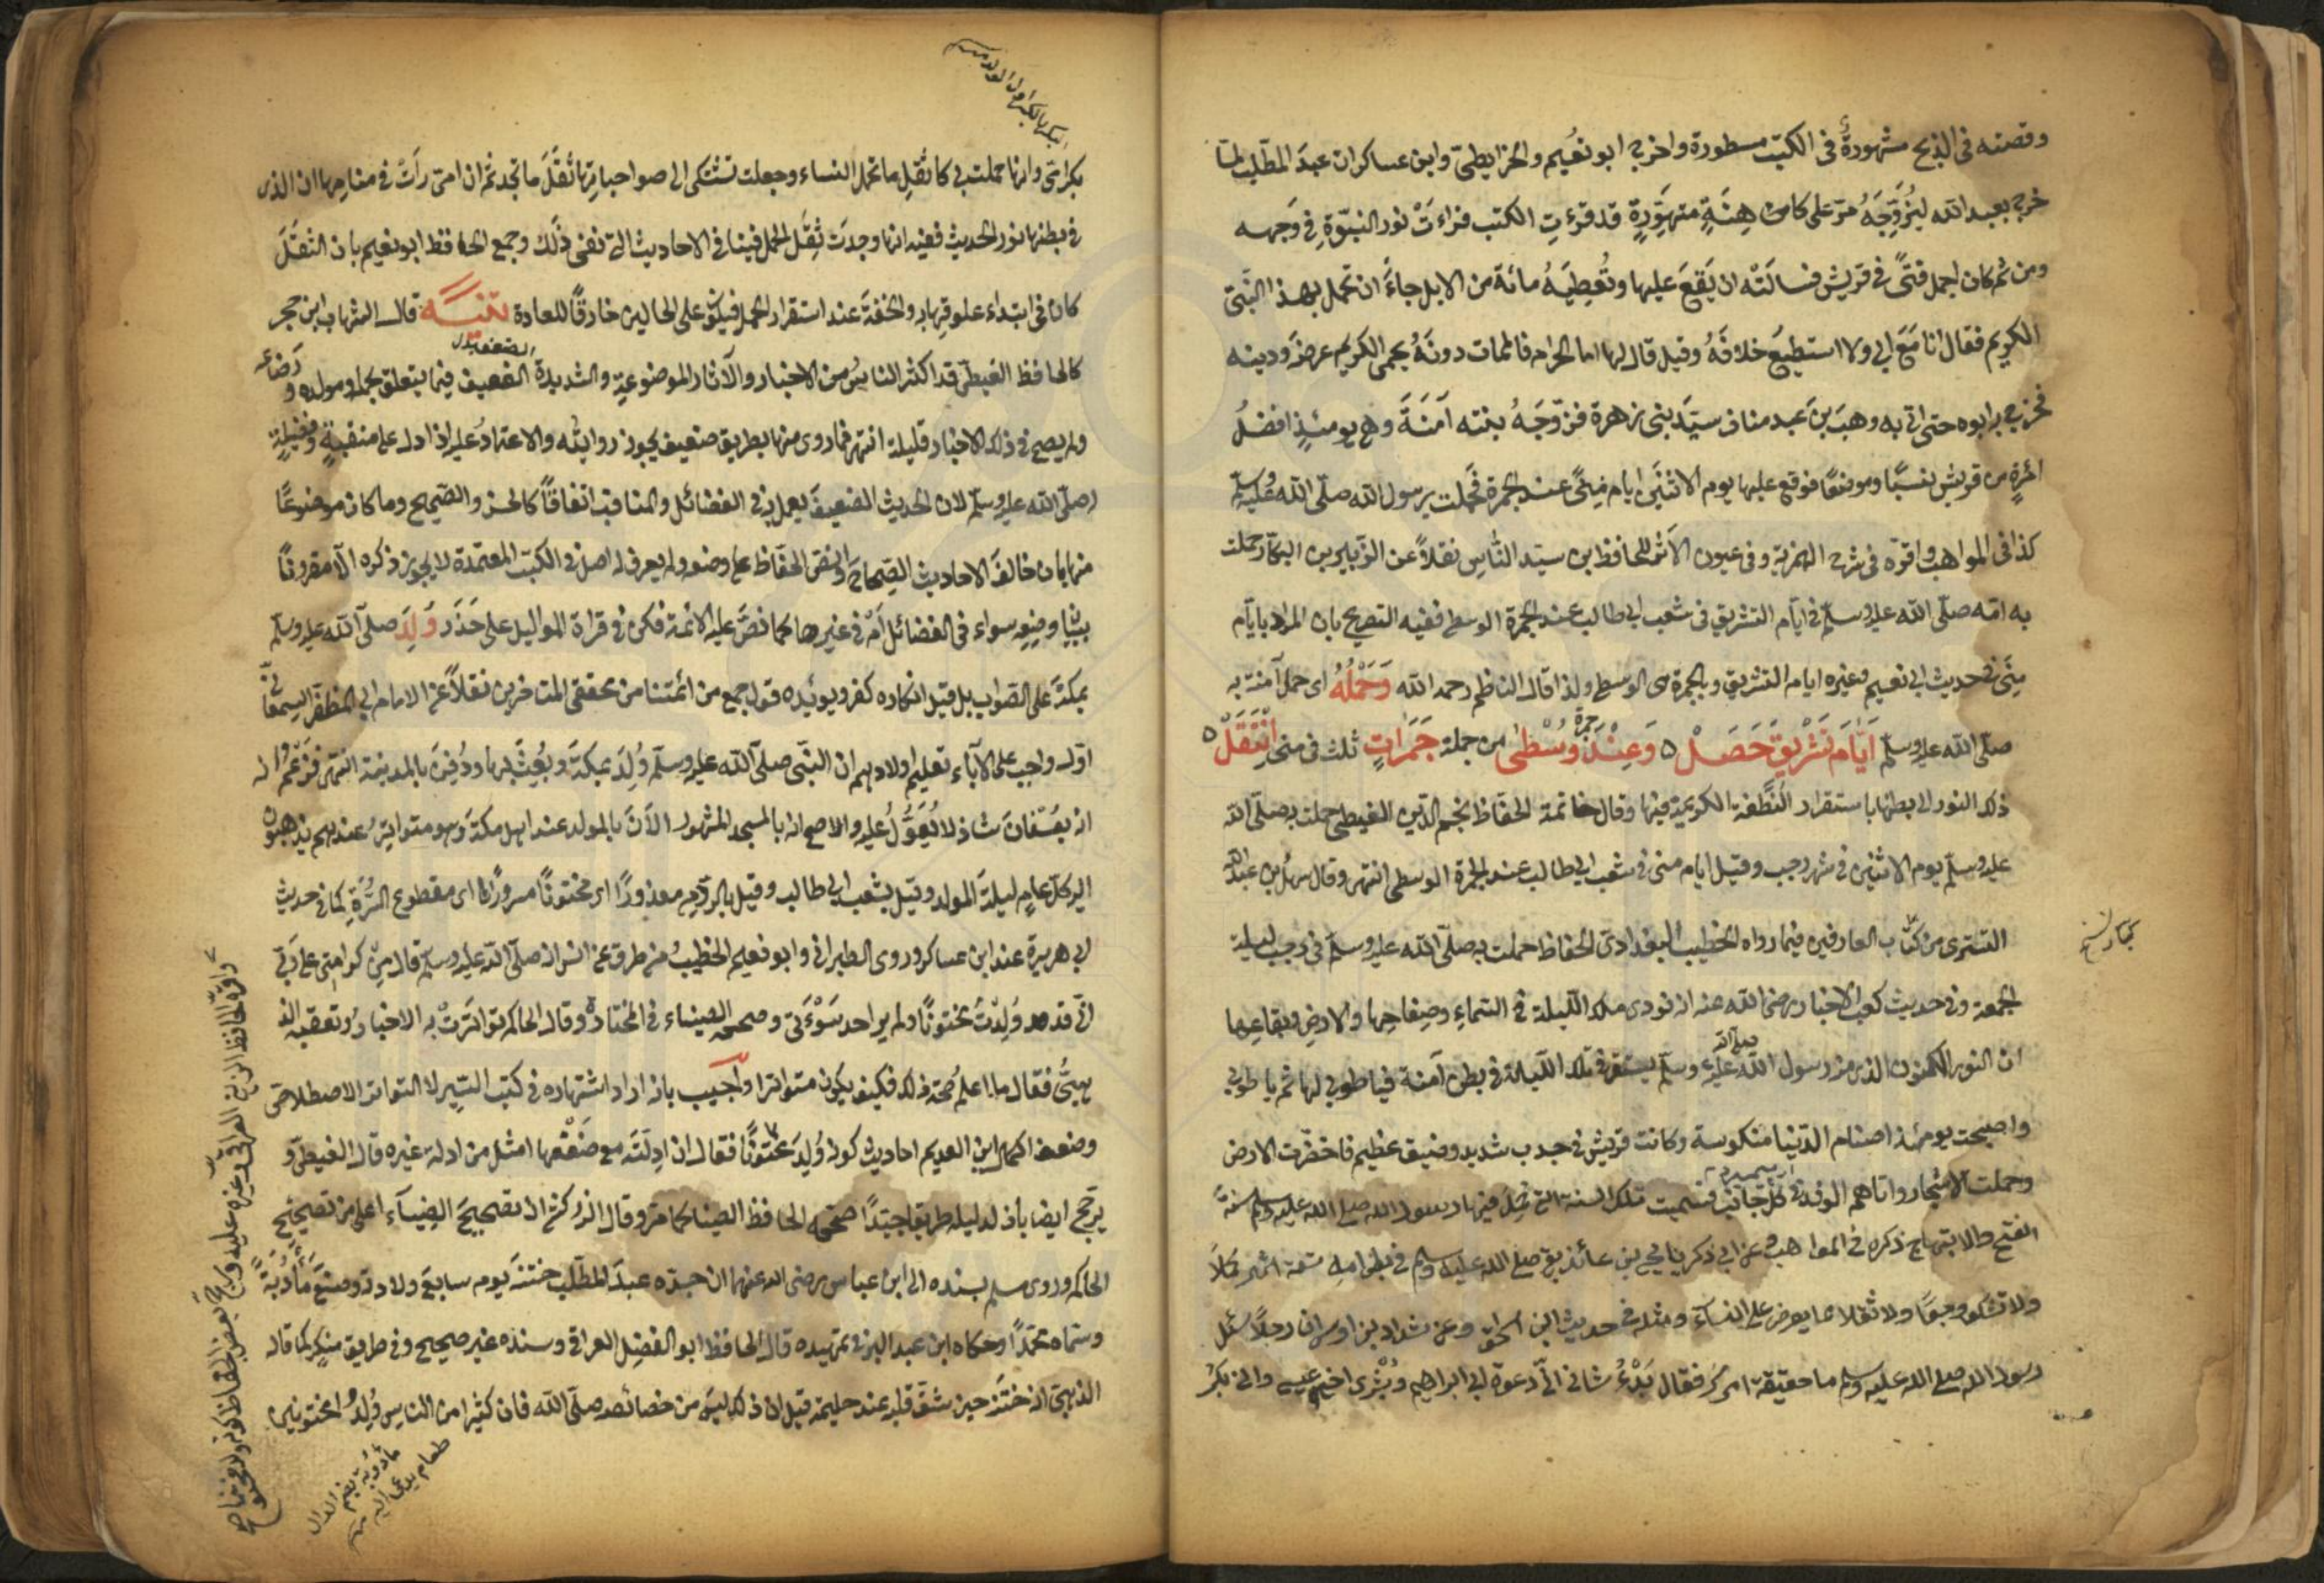 وقصته فى الذبح مشهورةٌ فى الكتب مسطورة واخرج ابو نعُيم والخرايطىّ وابن عساكر ان عبدَ المطّلب لمّا
خرج بعبد الله ليُزوِّجَهُ مرّ على كاهنة متهوّدة قد قرءتِ الكتب فراءتْ نور النبوّةِ فى وَجهه
ومن ثم كان اجمل فتًى فى قريش فسألَتْه ان يَقعَ عليها وتُعطِيَهُ مائة من الابل جاءَ ان تحمل بهذا النبىّ
الكريم فقال انا مَعَ ابى ولا استطيع خلافَهُ وقيل قال لها اما الحرام فالممات دونَهُ يحمى الكريم عرضَه ودينه
فخرج به ابوه حتى اتى به وهبَ بنَ عبد مناف سيّدَ بنى زهرة فزوّجَهُ بنته آمنَةَ وهى يومئذٍ افضلُ
امرءةٍ من قريش نسبًا وموضعًا فوقع عليها يوم الاثنَيْن ايام مِنًى عند الجمرة فحملت برسول الله صلّى الله عليه وسلّم
كذا فى المواهب واقرّه فى شرح الهمزية وفى عيون الاثر للحافظ بن سيّد النّاس نقلاً عن الزّبير بن البكّار حملت
به امّه صلّى الله عليه وسلّم فى ايّام التشريق فى شعب ابى طالب عند الجمرة الوسطى ففيه التصريح بان المراد بايّام
مِنًى فى حديث ابى نعيم وغيره ايام التشريق وبالجمرة هى الوسطى ولذا قال الناظم رحمه الله وَحَمْلُهُ اى حمل آمنة به
صلّى الله عليه وسلّم اَيّامَ تَشْرِيقٍ حَصَلْ ٥ وَعِنْدَ جمرة وُسْطى من جملة جَمَراتٍ ثلث فى منى اِنْتَقَلْ ٥
ذلك النور الى بطنها باستقرار النُّطفة الكريمة فيها وقال خاتمة الحفّاظ نجم الدّين الغيطى حملت به صلّى الله
عليه وسلّم يوم الاثنين فى شهر رجب وقيل ايام منى فى شعب ابى طالب عند الجمرة الوسطى انتهى وقال سهل بن عبد الله
التسترى من كتّاب العارفين فيما رواه الخطيب البغدادىّ الحفاظ حملت به صلّى الله عليه وسلّم فى رجب ليلة
الجمعة وفى حديث كعب الاحبار رضى الله عنه انه نودى تلك اللّيلة فى السّماءِ وصِفاحِها والارضِ وبقاعِها
ان النور المكنون الذى منه رسول الله صلّى الله عليه وسلّم يستقر فى تلك اللّيلة فى بطن آمنة فياطوبى لها ثم ياطوبى
واصبحت يومئذ اصنام الدّنيا منكوسة وكانت قريش فى جدب شديد وضيق عظيم فاخضّرت الارض
وحملت الاشجار واتاهم الوفد من كلّ جانب فسُميت تلك السنة التى حُمِلَ فيها برسول الله صلى الله عليه وسلم سنةَ
الفتح والابتهاج ذكره فى المواهب وعن ابى ذكريا يحيى بن عائذ بقى صلى الله عليه وسلم فى بطن امه تسعة اشهر كملاً
ولا تشكو وجعًا ولا ثقلا مما يعرض على النسآء ومثله فى حديث ابن اسحٰق وعن شداد بن اوس ان رجلاً سئل
رسول الله صلى الله عليه وسلم ما حقيقة امرك فقال بَدْءُ شانى انّى دعوة ابى ابراهيم وبُشْرى اخى عيسى وانى بكرُ
بكر امّى وانها حملت بى كاثقلِ ما تحمل النساء وجعلت تشتكى الى صواحباتها ثِقَلَ ما تجد ثم ان امى رأت فى منامها ان الذى
فى بطنها نور الحديث ففيه انها وجدت ثِقَلَ الحمل فينافى الاحاديث التى تنفى ذلك وجمع الحافظ ابو نعيم بان الثقَلَ
كان فى ابتداء علوقها به والخفةَ عند استقرار الحمل فيكون على الحالين خارقًا للعادة تنبيه قال الشهاب ابن حجر
كالحافظ الغيطىّ قد اكثر الناس من الاخبار والآثار الموضوعة والشديدة الضعيف فيما يتعلق بحمله ومولده ورضاعه
ولم يصح فى ذلك الا اخبار قليلة انتهى فما روى منها بطريق ضعيف يجوز روايته والاعتمادُ عليه اذا دل على منقبةٍ وفضيلةٍ
له صلّى الله عليه وسلّم لان الحديث الضعيفَ يعمل به فى الفضائل والمناقب اتفاقًا كالحسن والصّحيح وما كان موضوعًا
منها بان خالفَ الاحاديث الصِّحاحَ او نصّ الحفّاظ على وضعه ولم يعرف له اصل فى الكتب المعتمدة لا يجوز ذكره الّا مقرونًا
ببيان وضعِه سواء فى الفضائل ام فى غيرها كما نصّ عليه الائمة فكن فى قراءة المواليد على حَذَر وَلِدَ صلّى الله عليه وسلّم
بمكّة على الصّواب بل قيل انكاره كفر ويؤيده قول جمع من ائمتنا من محققى المتاخرين نقلاً عن الامام ابى المظفّر السمعانىّ
اوّل واجب على الآباء تعليم اولادهم ان النبىّ صلّى الله عليه وسلّم وُلِدَ بمكّةَ وبُعِثَ بها ودُفِنَ بالمدينة انتهى فزعْمُ
انه بعُسْفانَ شاذ لا يُعَوَّلُ عليه والاصح انه بالمسجد المشهور الآنَ بالمولد عند اهل مكّةَ وهو متواتِرٌ عندهم يذهبون
اليه كلّ عامٍ ليلةَ المولد وقيل بشعب ابى طالب وقيل بالردم معذورًا اى مختونًا مسرورًا اى مقطوع السُّرّة كما فى حديث
ابى هريرة عند ابن عساكر وروى الطبرانى وابو نعيم والخطيبُ من طرق عن انس انه صلّى الله عليه وسلّم قال مِنْ كرامتى على ربى
انّى قد وُلِدْتُ مختونًا ولم ير احد سَوْءَتى وصححه الضياء فى المختارة وقال الحاكم تواترتْ به الاخبارُ وتعقبه الذ
هبىُّ فقال ما اعلم صحّة ذلك فكيف يكون متواترا واُجيب بانه اراد اشتهاره فى كتب السّير لا التواتر الاصطلاحى
وضعف الكمال ابن العديم احاديث كونه وُلِدَ مختونًا فقال ان ادلّتَه مع ضَعْفها امثل من ادلة غيره قال الغيطىّ و
يرجح ايضا بأنه لدليله طريقا جيّدًا صححه الحافظ الضياء كما مرّ وقال الزركشى ان تصحيح الضِيآءِ اعلى من تصحيح
الحاكم وروى بسنده الى ابن عباس رضى الله عنهما ان جده عبدَ المطّلب ختنه يوم سابعِ ولادته وصنع مأدُبةً
وسمّاه محمّدًا وحكاه ابن عبد البر فى تمهيده قال الحافظ ابو الفضل العراقى وسنده غير صحيح وفى طريق منكر كما قاله
الذهبىّ انه خُتِنَ حين شقّ قلبه عند حليمة قيل ان ذلك ليس من خصائصه صلّى الله فان كثيرا من الناس وُلِدُوا مختونين
مأدُبة بضم الدال
طعام يدعى اليه